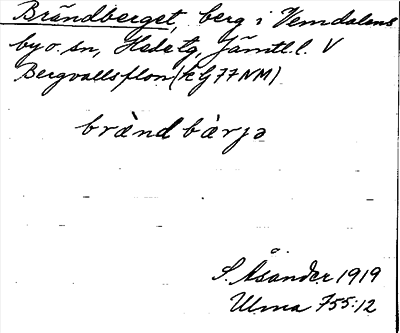 Brändberget, berg i Vemdalens
by o. sn, Hede tg, Jämtl. l. V
Bergvallsflon (RG77NM)
brändbärjə
S. Åsander 1919
Ulma 755:12